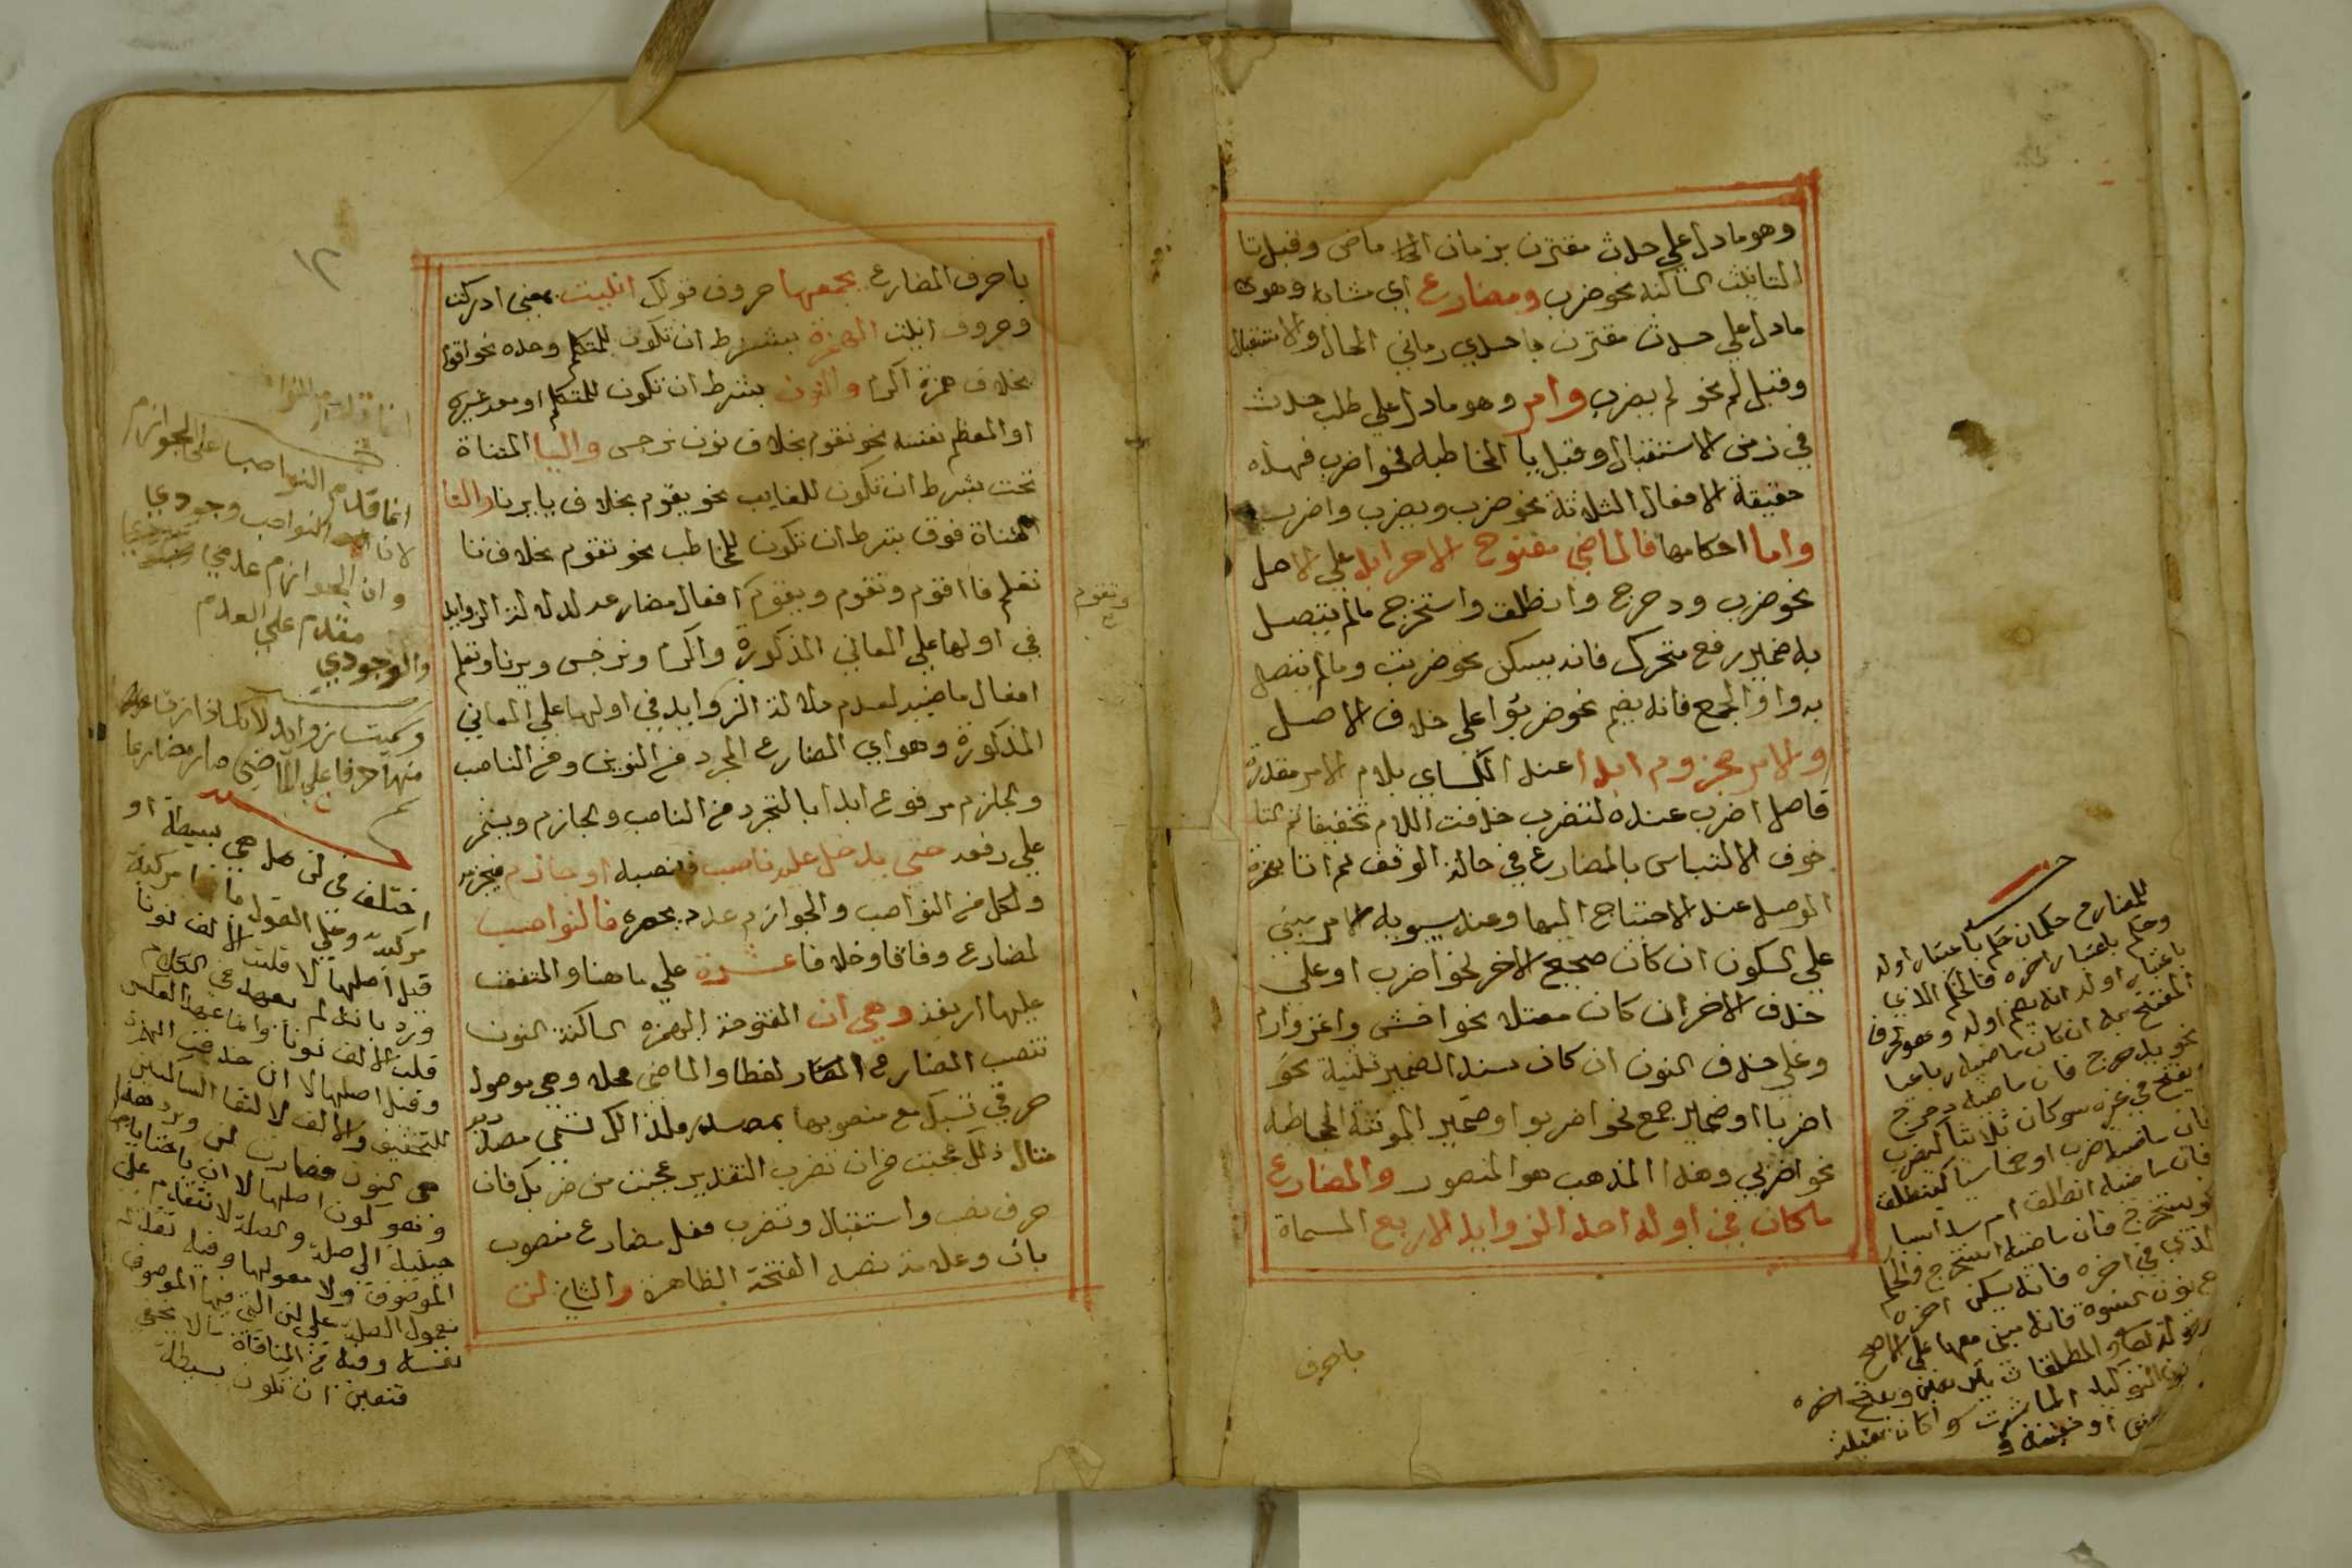 وهو مادل علي حدث مقترن بزمان الي ماضي وقبل تا
التانيث الساكنة نحو ضرب ومضارع اي مشابه وهو
مادل علي حدث مقترن باحدي زماني الحال والاستقبال
وقبل لم نحو لم يضرب وامر وهو مادل علي طلب حدث
في زمن الاستقبال وقبل يا المخاطبة نحو اضرب فهذه
حقيقة الافعال الثلاثة نحو ضرب ويضرب واضرب
واما احكامها فالماضي مفتوح الاخر ابدا علي الاصل
نحو ضرب ودحرج وانطلق واستخرج مالم يتصل
به ضمير رفع متحرك فانه يسكن نحو ضربت ومالم يتصل
به واو الجمع فانه يضم نحو ضربوا علي خلاف الاصل
والامر مجزوم ابدا عند الكساي بلام الامر مقدرة
فاصل اضرب عنده لتضرب حذفت اللام تخفيفا ثم التا
خوف الالتباس بالمضارع في حالة الوقف ثم اتا بهمزة
الوصل عند الاحتتاج اليها وعند سيبويه الامر مبني
علي السكون ان كان صحيح الاخر نحو اضرب او علي
حذف الاخر ان كان معتلا نحو اخش واغز وارم
وعلي حذف النون ان كان مسند الضمير تثنية نحو
اضربا او ضمير جمع نحو اضربوا او ضمير المونثة المخاطبة
نحو اضربي وهذا المذهب هو المنصور والمضارع
ماكان في اوله احد الزوايد الاربع المسماة
باحرف
للمضارع حكمان حكم باعتبار اوله
وحكم باعتبار اخره فالحكم الذي
باعتبار اوله انه يضم اوله وهو حرف
المفتتح به ان كان ماضيه رباعيا
نحو يدحرج فان ماضيه دحرج
يفتح في غيره سو كان ثلاثيا كيضرب
فان ماضيه ضرب او خماسيا كينطلق
فان ماضيه انطلق ام سداسيا
كيستخرج فان ماضيه استخرج والحكم
الذي في اخره فانه يسكن اخره
مع نون النسوة فانه مبني معها علي الاصح
نحو قوله تعالي والمطلقات يتربصن ويفتح اخره
نون التوكيد المباشرت
باحرف المضارع يجمعها حروف قولك انايت بمعني ادركت
وحروف انيت الهمزة بشرط ان تكون للمتكلم وحده نحو اقوم
بخلاف همزة اكرم والنون بشرط ان تكون للمتكلم او معه غيره
او المعظم نفسه نحو نقوم بخلاف نون نرجس واليا المثناة
تحت بشرط ان تكون للغايب نحو يقوم بخلاف يا يرنا والتا
المثناة فوق بشرط ان تكون للمخاطب نحو تقوم بخلاف تا
تعلم فا اقوم ونقوم ويقوم افعال مضارعه لدلالة الزوايد
في اولها علي المعاني المذكورة واكرم ونرجس ويرنا وتعلم
افعال ماضيه لعدم دلالة الزوايد في اولها علي المعاني
المذكورة وهو اي المضارع المجرد من النونين ومن الناصب
والجازم مرفوع ابدا بالتجرد من الناصب والجازم ويستمر
علي رفعه حتي يدخل عليه ناصب فنصبه او جازم فيجزمه
ولكل من النواصب والجوازم عدد يحصره فالنواصب
لمضارع وفاقا وخلافا عشرة علي ماهنا والمتفق
عليها اربعة وهي ان المفتوحة الهمزة الساكنة النون
تنصب المضارع لفظا والماضي محلا وهي موصول
حرفي تسبك مع منصوبها بمصدر ولذلك تسمي مصدرية
مثال ذلك عجبت من ان تضرب التقدير عجبت من ضربك فان
حرف نصب واستقبال وتضرب فعل مضارع منصوب
بان وعلامة نصبه الفتحة الظاهرة والثاني لن
وتقوم
١٢
انما قدم النواصب علي الجوازم
لان النواصب وجودي
وان الجوازم عدمي
والوجودي مقدم علي العدم
وسميت زوايد لانك اذا زدت
منها حرفا علي الماضي صار مضارعا
اختلف في لن هل هي بسيطة او
مركبة وعلي القول بانها مركبة
قيل اصلها لا قلبت الالف نونا
ورد بانه لم يعهد في الكلام
قلب الالف نونا وانما عهد العكس
وقيل اصلها لا ان حذفت الهمزة
للتخفيف والالف لالتقا الساكنين
مع النون فصارت لن ورد هذا
فتعين ان تكون بسيطة